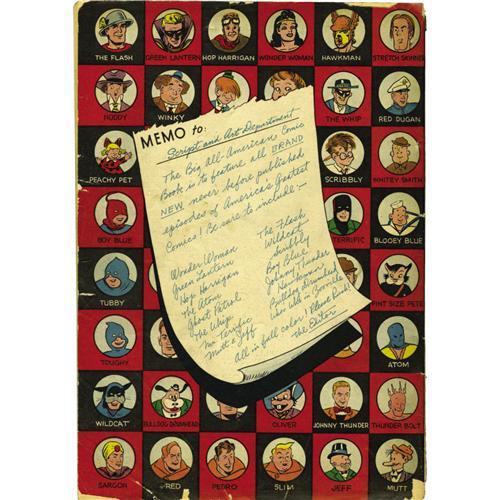 THE FLASH GREEN LANTERN HOP HARRIGAN WONDER WOMAN HAWKMAN STRETCH SKINNER
NODDY WINKY THE WHIP RED DUGAN
MEMO to:
Script and Art Department
The Big All-American Comic
Book is to feature all BRAND
NEW never before published
episodes of America's Greatest
Comics! Be sure to include:-
Wonder Woman
Green Lantern
Hop Harrigan
The Atom
Ghost Patrol
The Whip
Mr. Terrific
Mutt & Jeff
The Flash
Wildcat
Scribbly
Boy Blue
Johnny Thunder
Hawkman
Bulldog Drumhead
All in full color! Please Rush!
the Editor
PEACHY PET SCRIBBLY WHITEY SMITH
BOY BLUE TERRIFIC BLOOEY BLUE
TUBBY PINT SIZE PETE
TOUGHY ATOM
WILDCAT BULLDOG DRUMHEAD OLIVER JOHNNY THUNDER THUNDER BOLT
SARGON RED PEDRO SLIM JEFF MUTT